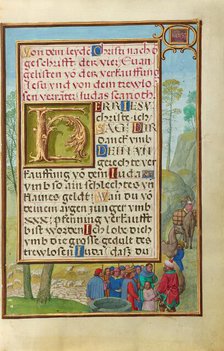 Von dem leyden Christi nach
geschrifft der vier Euan
gelisten vo der verkauffung
Jesu vnd von dem trewlo
sen verräter Judas scarioth
HERR IESV
christe ich
SAG DIR
danck vmb
DEIN vn
gerechte ver
kauffung vo dem Juda
vmb so ain schlechtes vn
klaines geldt Wan du vo
im worden vmb
XXX pfenning verkaufft
bist worden Ich lobe dich
vmb die grosse gedult des
trewlosen Juda das du